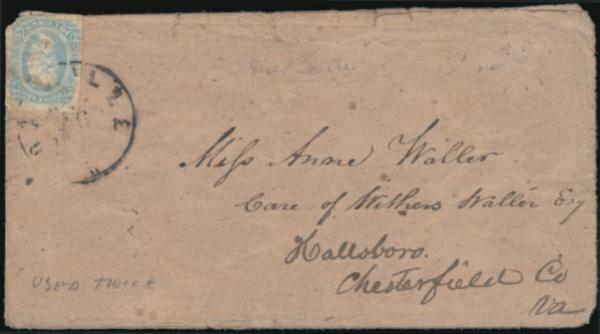 Used twice
Miss Anne Waller
Care of Withers Waller Esq
Hallsboro.
Chesterfield Co
Va
USED TWICE